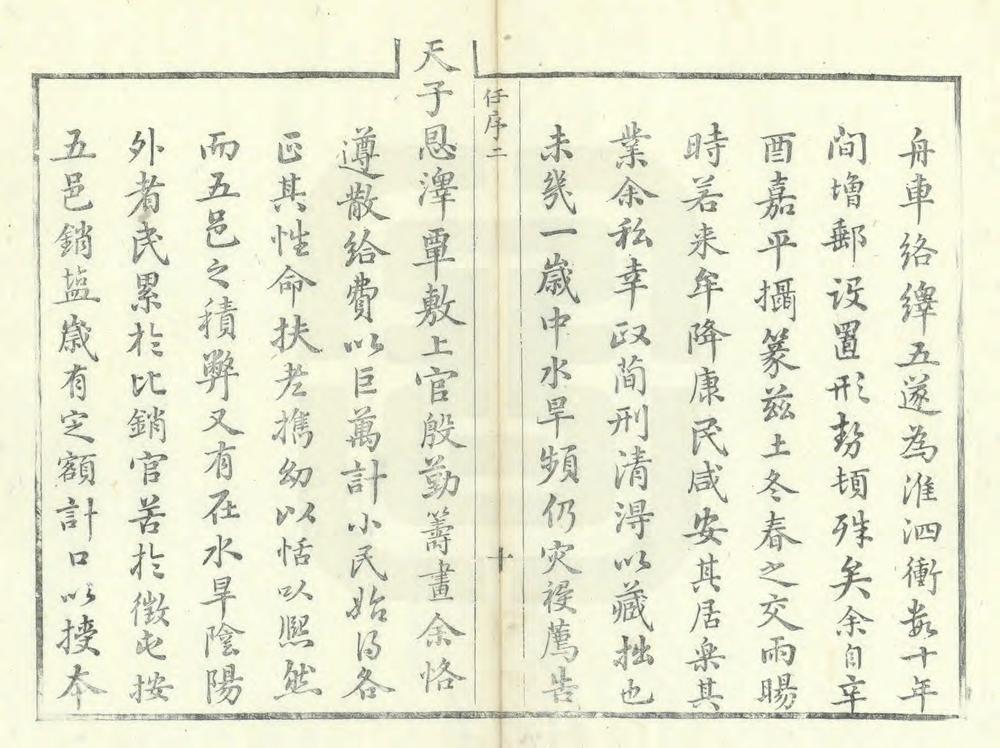 舟車絡繹五遂為淮泗衝數十年
间增郵设置形勢頓殊矣余自辛
酉嘉平攝篆兹土冬春之交雨暘
時若来牟降康民咸安其居楽其
業余私幸政简刑清淂以藏拙也
未幾一歳中水旱頻仍灾祲薦告
仟序二
十
天子恩澤覃敷上官殷勤籌畫余恪
遵散给費以巨萬計小民始得各
正其性命扶老携幼以恬以熙然
而五邑之積弊又有在水旱陰陽
外者民累扵比銷官苦扵徵屯按
五邑銷塩歳有定額計口以授本